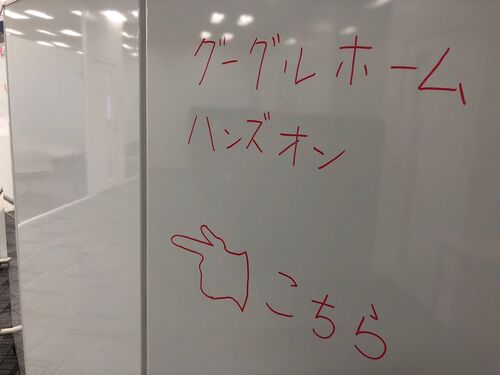 グーグル ホーム
ハンズオン
こちら